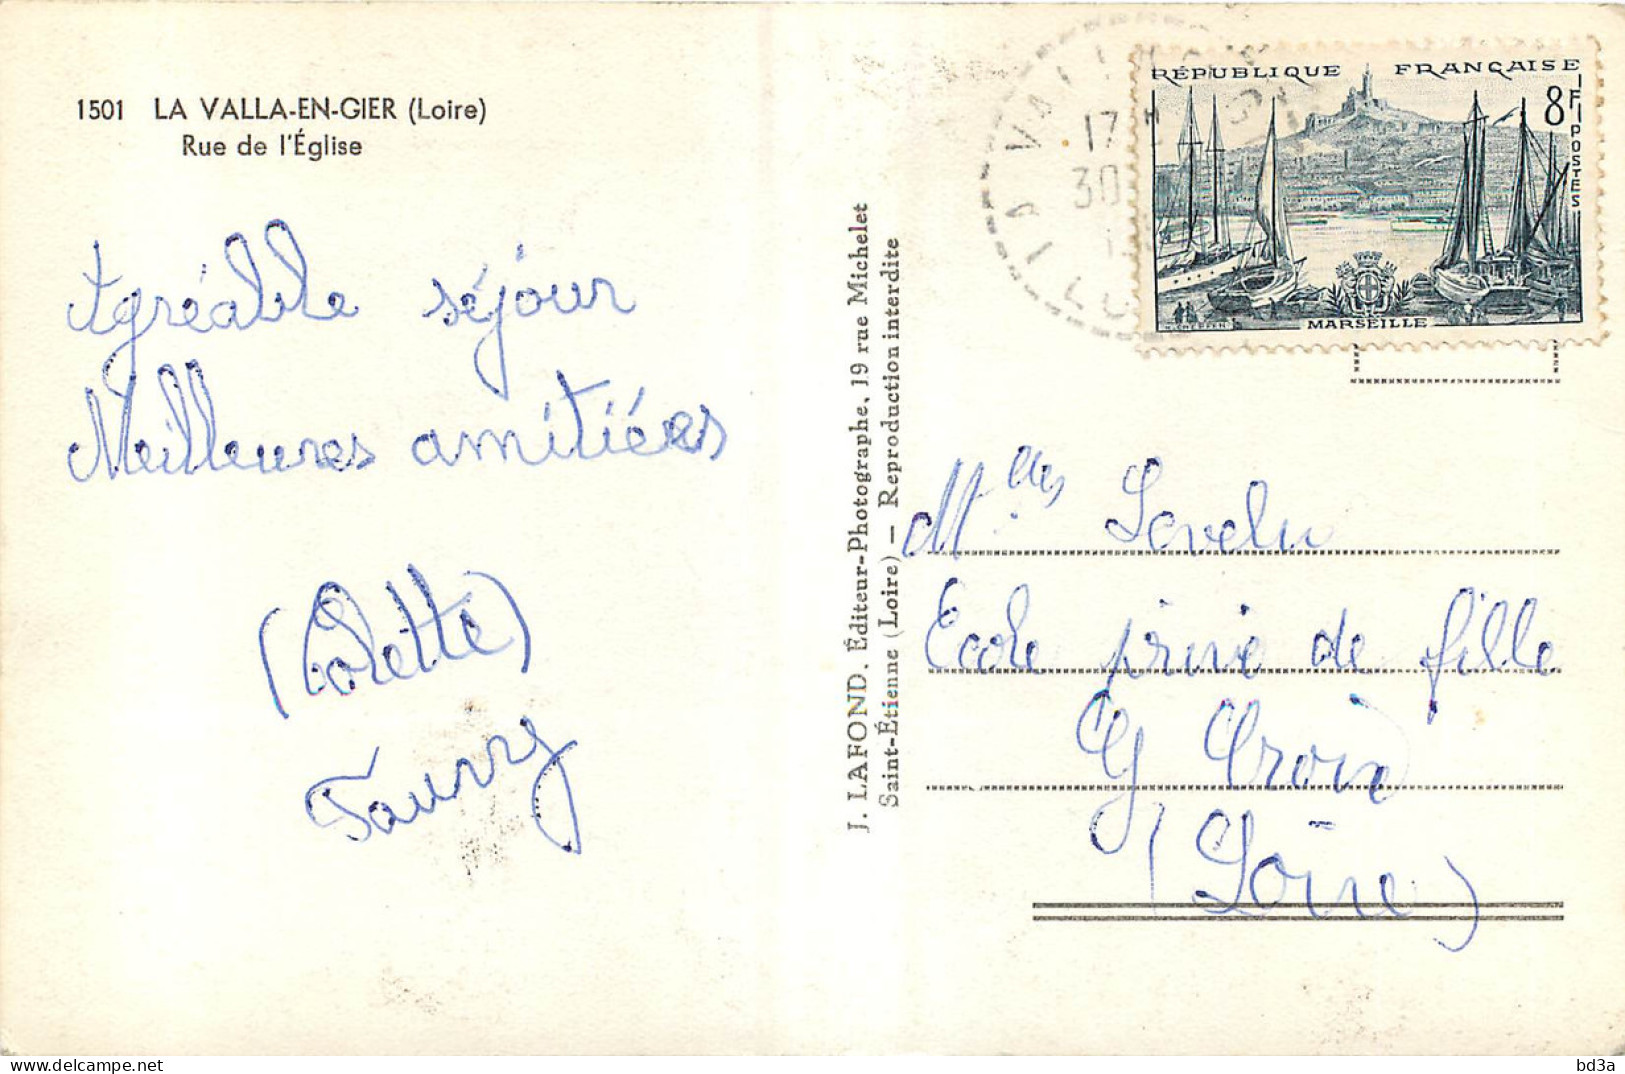 1501 LA VALLA-EN-GIER (Loire)
Rue de l'Église
Agréable séjour
Meilleures amitiées
(Colette)
Faurry
J. LAFOND. Éditeur-Photographe, 19 rue Michelet
Saint-Étienne (Loire) — Reproduction interdite
17 H
30
RÉPUBLIQUE FRANÇAISE
8F
POSTES
MARSEILLE
Mdes
Ecole privé de fille
Gd Croix
(Loire)
delcampe.net
bd3a